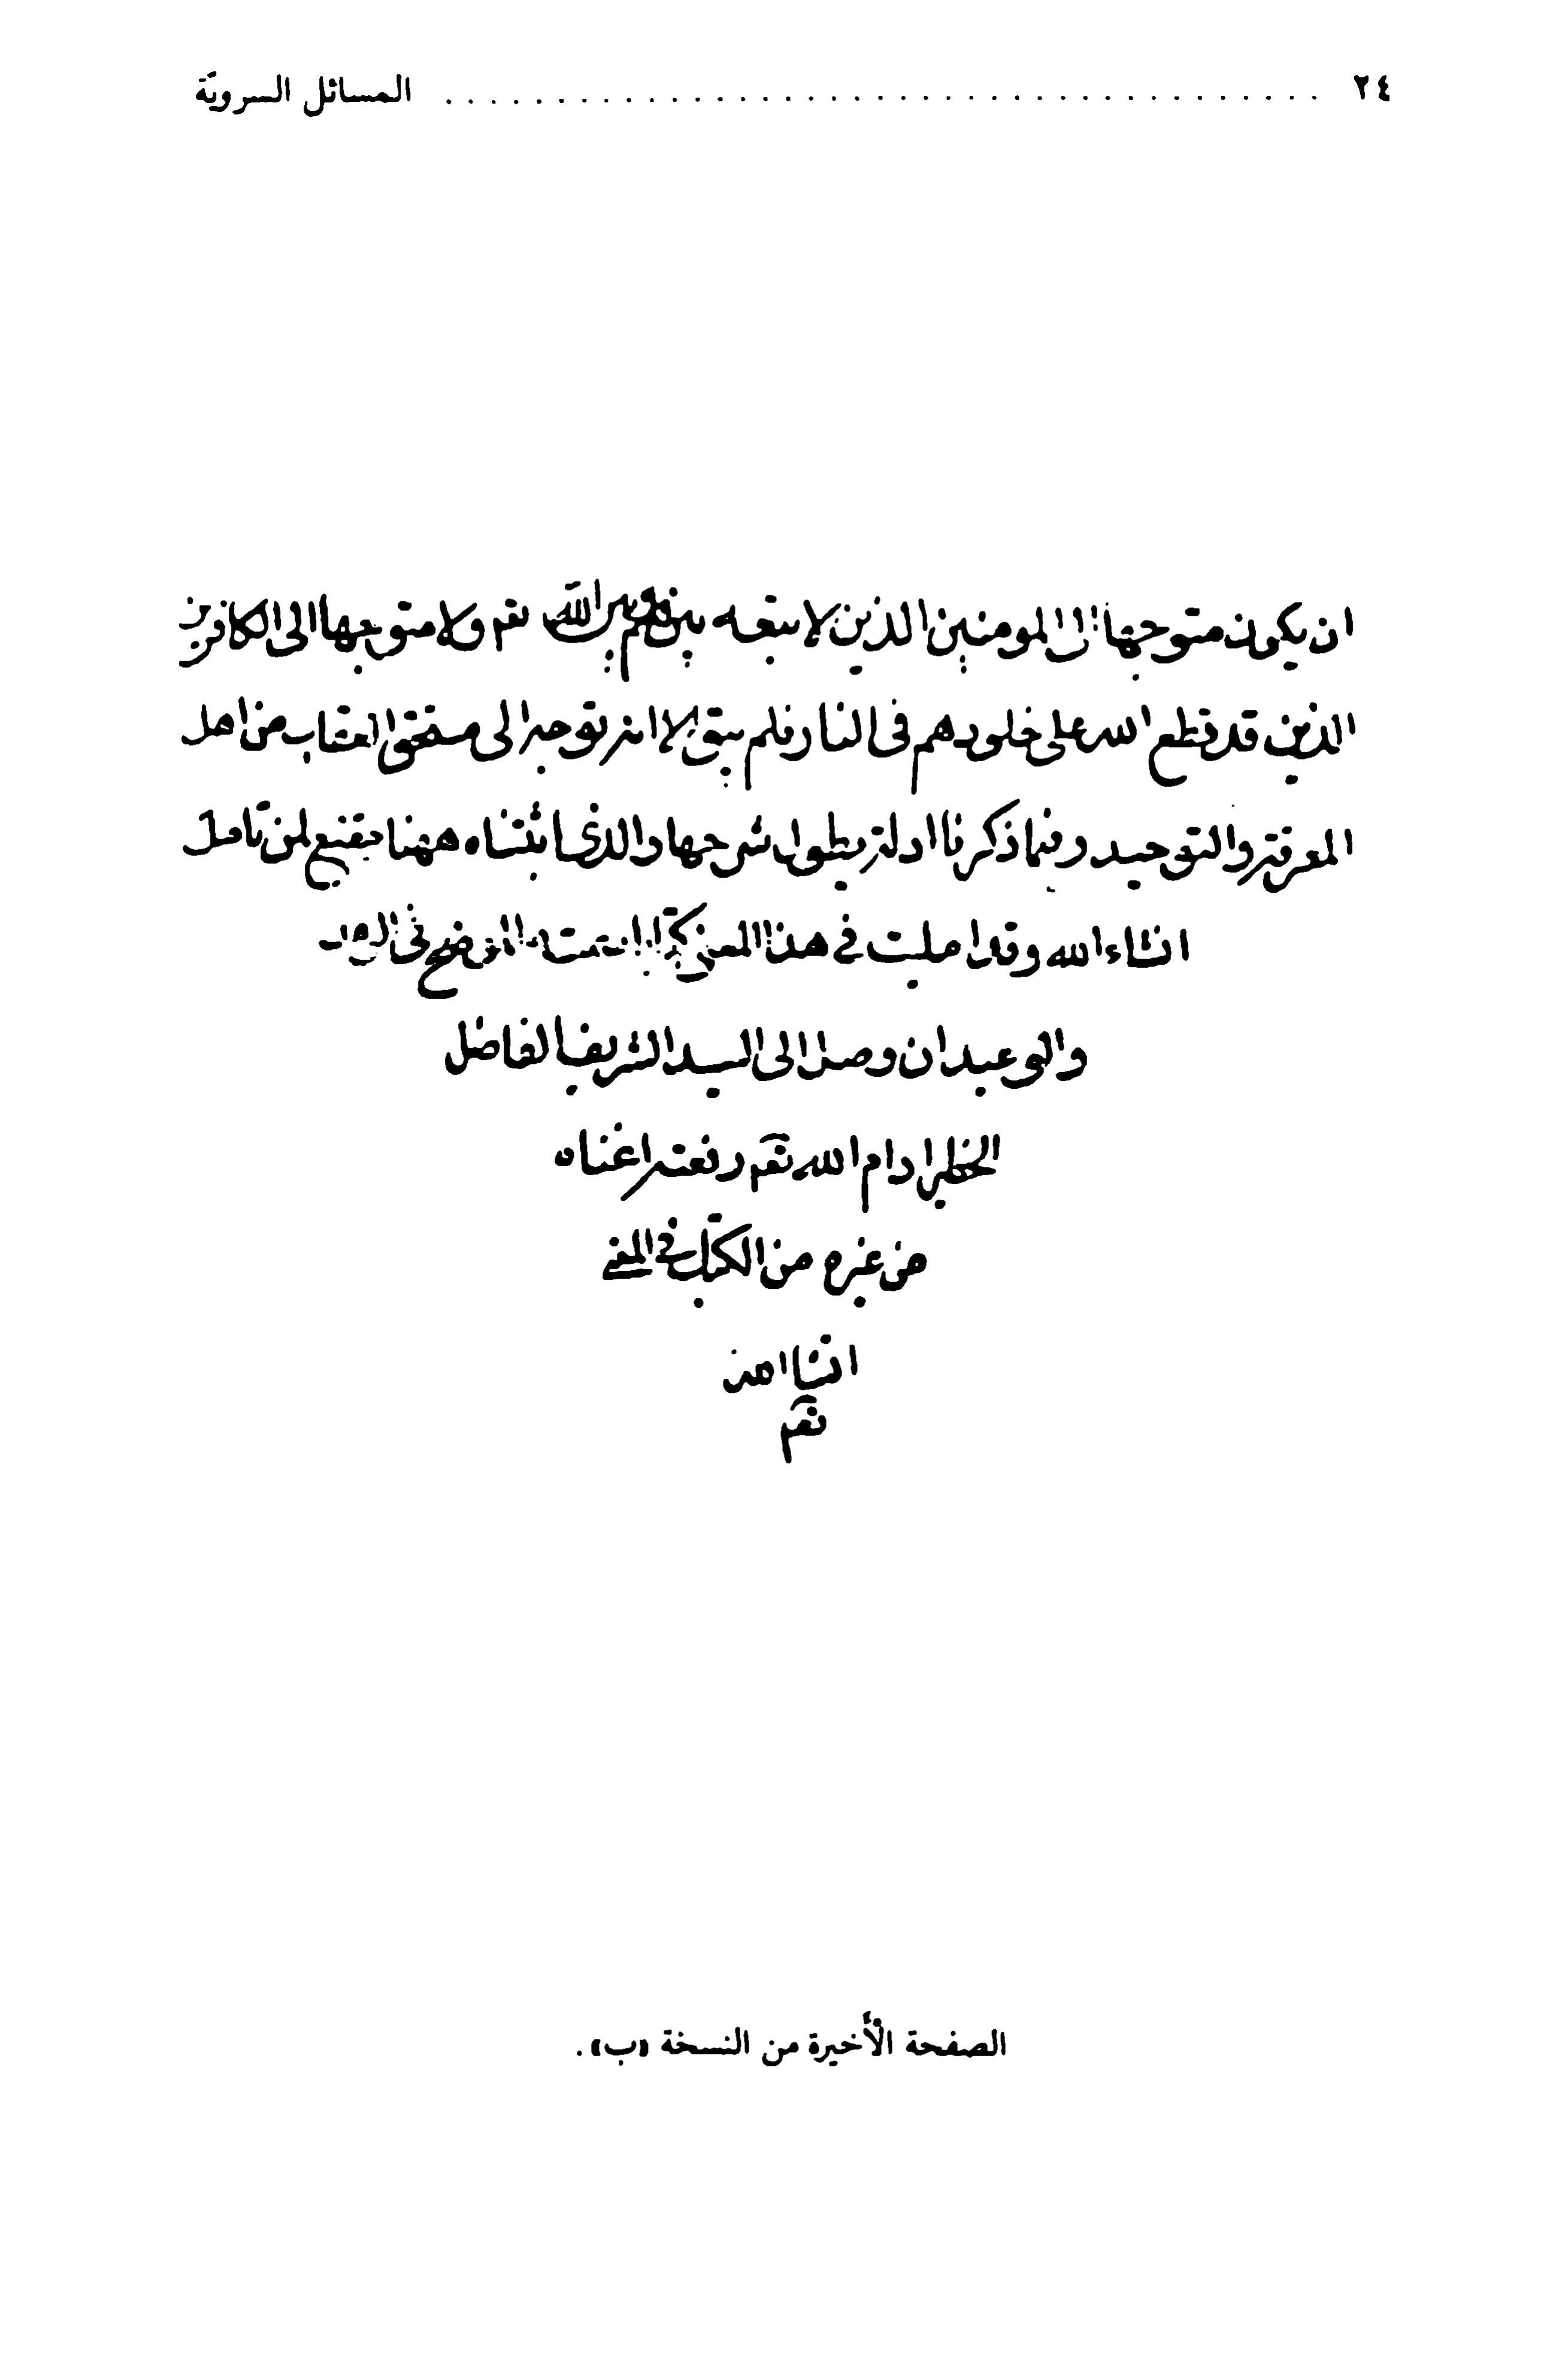 ٢٤ ........................................ المسائل السرويّة
ان يكون متوجها الى المومنين الذين لا تبعه بينهم وبين الله تعم ولا متوجها الى الكافرين
الذين قد قطع الله على خلودهم فى النار فلم يبق الا انه توجه الى مستحق العقاب من اهل
المعرفة والتوحيد وفيما ذكرنا ادلة يطول شرحها والذي اثبتناه ههنا مقنع لمن تامل
انشاء الله وقد امليت في هذا المعنى كتابا سميته الموضح في
والوعيد ان وصل الى السيد الشريف الفاضل
الخطير ادام الله تعم رفعته اغناه
من غيره من الكتب في المعنى
انشا الله
تعم
الصفحة الأخيرة من النسخة «ب».